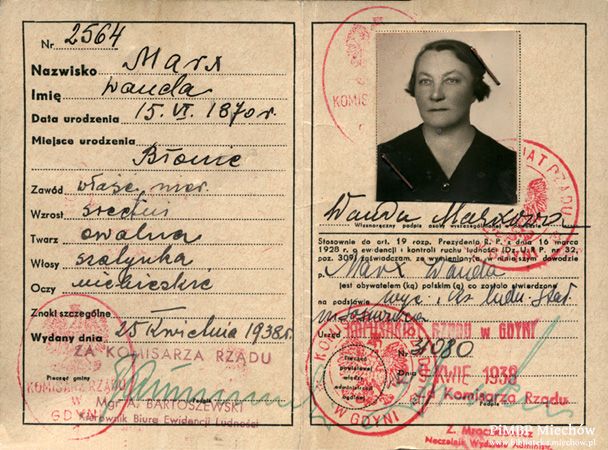 Nr. 2564
Nazwisko Marx
Imię Wanda
Data urodzenia 15. VI. 1870 r.
Miejsce urodzenia
Błonie
Zawód właśc. nier.
Wzrost średni
Twarz owalna
Włosy szatynka
Oczy niebieskie
Znaki szczególne
Wydany dnia 25 kwietnia 1938 r.
ZA KOMISARZA RZĄDU
Pieczęć gminy
Podpis
KOMISARZ RZĄDU
W GDYNI
Mgr A. BARTOSZEWSKI
Kierownik Biura Ewidencji Ludności
KOMISARZ
RZĄDU
Wanda Marxowa
Własnoręczny podpis osoby wyszczególnionej w dowodzie
Stosownie do art. 19 rozp. Prezydenta R. P. z dnia 16 marca
1928 r. o ewidencji i kontroli ruchu ludności (Dz. U. R. P. nr. 32,
poz. 309) zaświadczam, że wymieniony(a) w niniejszym dowodzie
p. Marx Wanda
jest obywatelem (ką) polskim (ą) co zostało stwierdzone
na podstawie
Urząd KOMISARIAT RZĄDU W GDYNI
Nr
Dnia KWIE 1938
Za Komisarza Rządu
Podpis
W GDYNI
Naczelnik Wydziału
PiMBP Miechów
www.biblioteka.miechow.pl